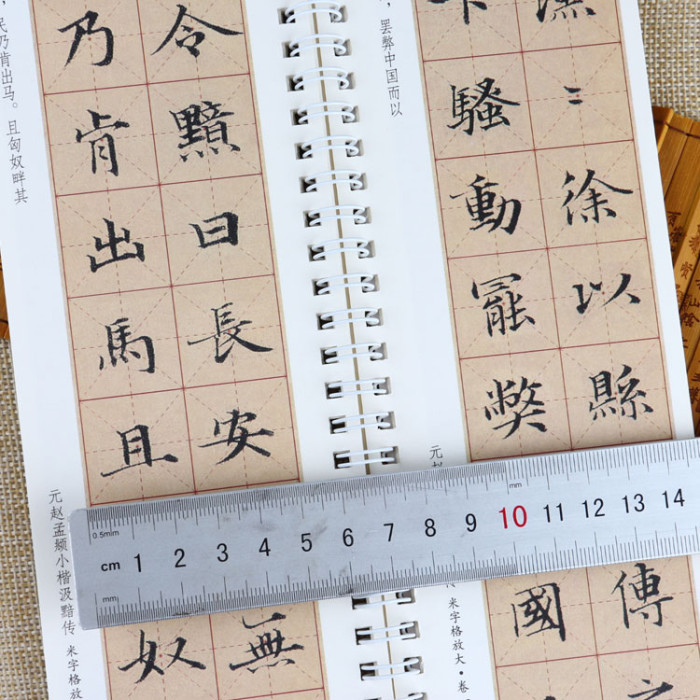 〻徐以縣
傳
騷動罷弊
國
，罢弊中国而以
元赵
米字格放大·卷
令黯曰長安
無
乃肯出馬且
奴
民乃肯出马。且匈奴畔其
元赵孟頫小楷汲黯传 米字格放
0.5mm
mm
cm 1 2 3 4 5 6 7 8 9 10 11 12 13 14
mm